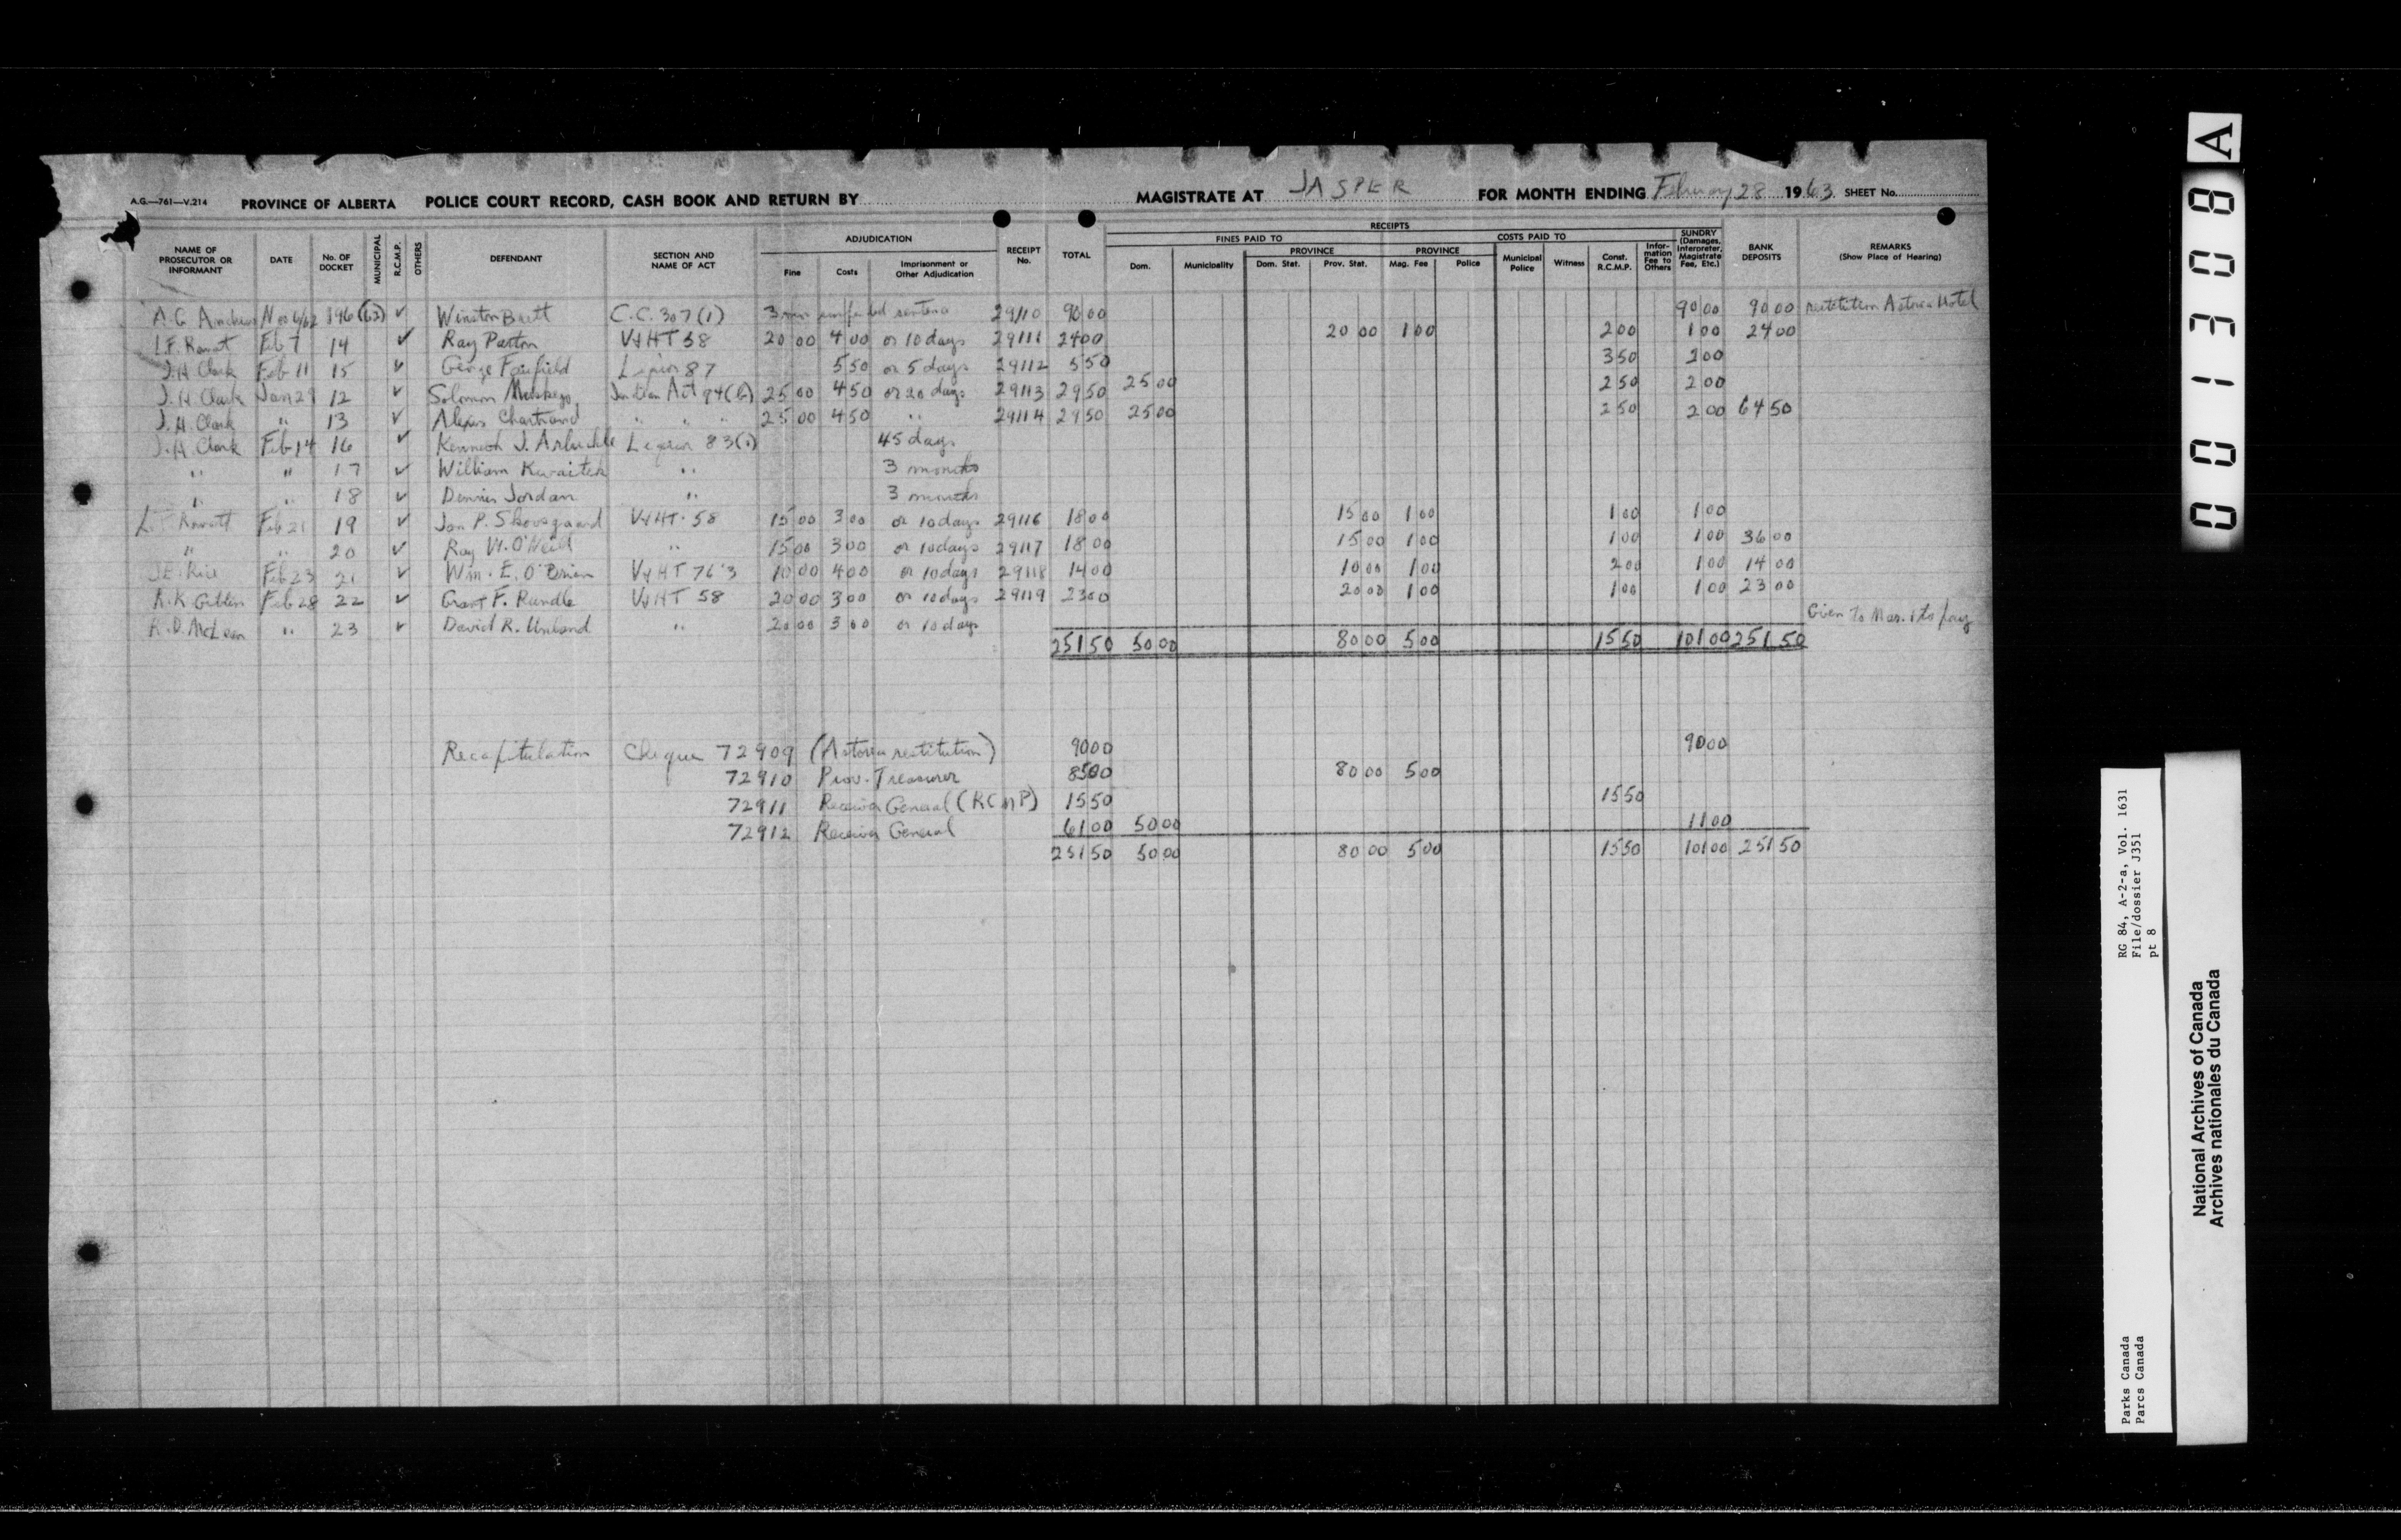 A.G.—761—V.214 PROVINCE OF ALBERTA POLICE COURT RECORD, CASH BOOK AND RETURN BY MAGISTRATE AT JASPER FOR MONTH ENDING February 28 1963 SHEET No.
RECEIPTS
ADJUDICATION FINES PAID TO COSTS PAID TO
NAME OF PROSECUTOR OR INFORMANT DATE No. OF DOCKET MUNICIPAL R.C.M.P. OTHERS DEFENDANT SECTION AND NAME OF ACT Fine Costs Imprisonment or Other Adjudication RECEIPT No. TOTAL Dom. Municipality PROVINCE Dom. Stat. Prov. Stat. PROVINCE Mag. Fee Police Municipal Police Witness Const. R.C.M.P. Information Fee to Others SUNDRY (Damages, Interpreter, Magistrate Fee, Etc.) BANK DEPOSITS REMARKS (Show Place of Hearing)
A.G. Nov 6/62 196 (63) ✓ Winston C.C. 307 (1) 3 sentence 29110 90 00 90 00 90 00 restitution Astoria Hotel
L.F. Feb 7 14 ✓ Ray Patton V&HT 58 20 00 4 00 or 10 days 29111 24 00 20 00 1 00 2 00 1 00 24 00
J.H. Clark Feb 11 15 ✓ George Fairfield Liquor 87 5 50 or 5 days 29112 5 50 3 50 2 00
J.H. Clark Jan 29 12 ✓ Solomon Indian Act 94(b) 25 00 4 50 or 20 days 29113 29 50 25 00 2 50 2 00
J.H. Clark " 13 ✓ Alexis Chartrand " " " 25 00 4 50 " 29114 29 50 25 00 2 50 2 00 64 50
J.H. Clark Feb 14 16 ✓ Kenneth J. Arbuckle Liquor 83(1) 45 days
" " 17 ✓ William " 3 months
" " 18 ✓ Dennis Jordan " 3 months
L. Feb 21 19 ✓ Jan P. Skovsgaard V&HT 58 15 00 3 00 or 10 days 29116 18 00 15 00 1 00 1 00 1 00
" " 20 ✓ Ray W. O'Neill " 15 00 3 00 or 10 days 29117 18 00 15 00 1 00 1 00 1 00 36 00
J.E. Rice Feb 23 21 ✓ Wm. E. O'Brian V&HT 76.3 10 00 4 00 or 10 days 29118 14 00 10 00 1 00 2 00 1 00 14 00
R.K. Feb 28 22 ✓ Grant F. Rundle V&HT 58 20 00 3 00 or 10 days 29119 23 00 20 00 1 00 1 00 1 00 23 00
R.D. McLean " 23 ✓ David R. Unland " 20 00 3 00 or 10 days Given to Mar. 1 to pay
251 50 50 00 80 00 5 00 15 50 101 00 251 50
Recapitulation Cheque 72909 (Astoria restitution) 90 00 90 00
72910 Prov. Treasurer 85 00 80 00 5 00
72911 Receiver General (RCMP) 15 50 15 50
72912 Receiver General 61 00 50 00 11 00
251 50 50 00 80 00 5 00 15 50 101 00 251 50
001308 A
RG 84, A-2-a, Vol. 1631
File/dossier J351
pt 8
Parks Canada
Parcs Canada
National Archives of Canada
Archives nationales du Canada